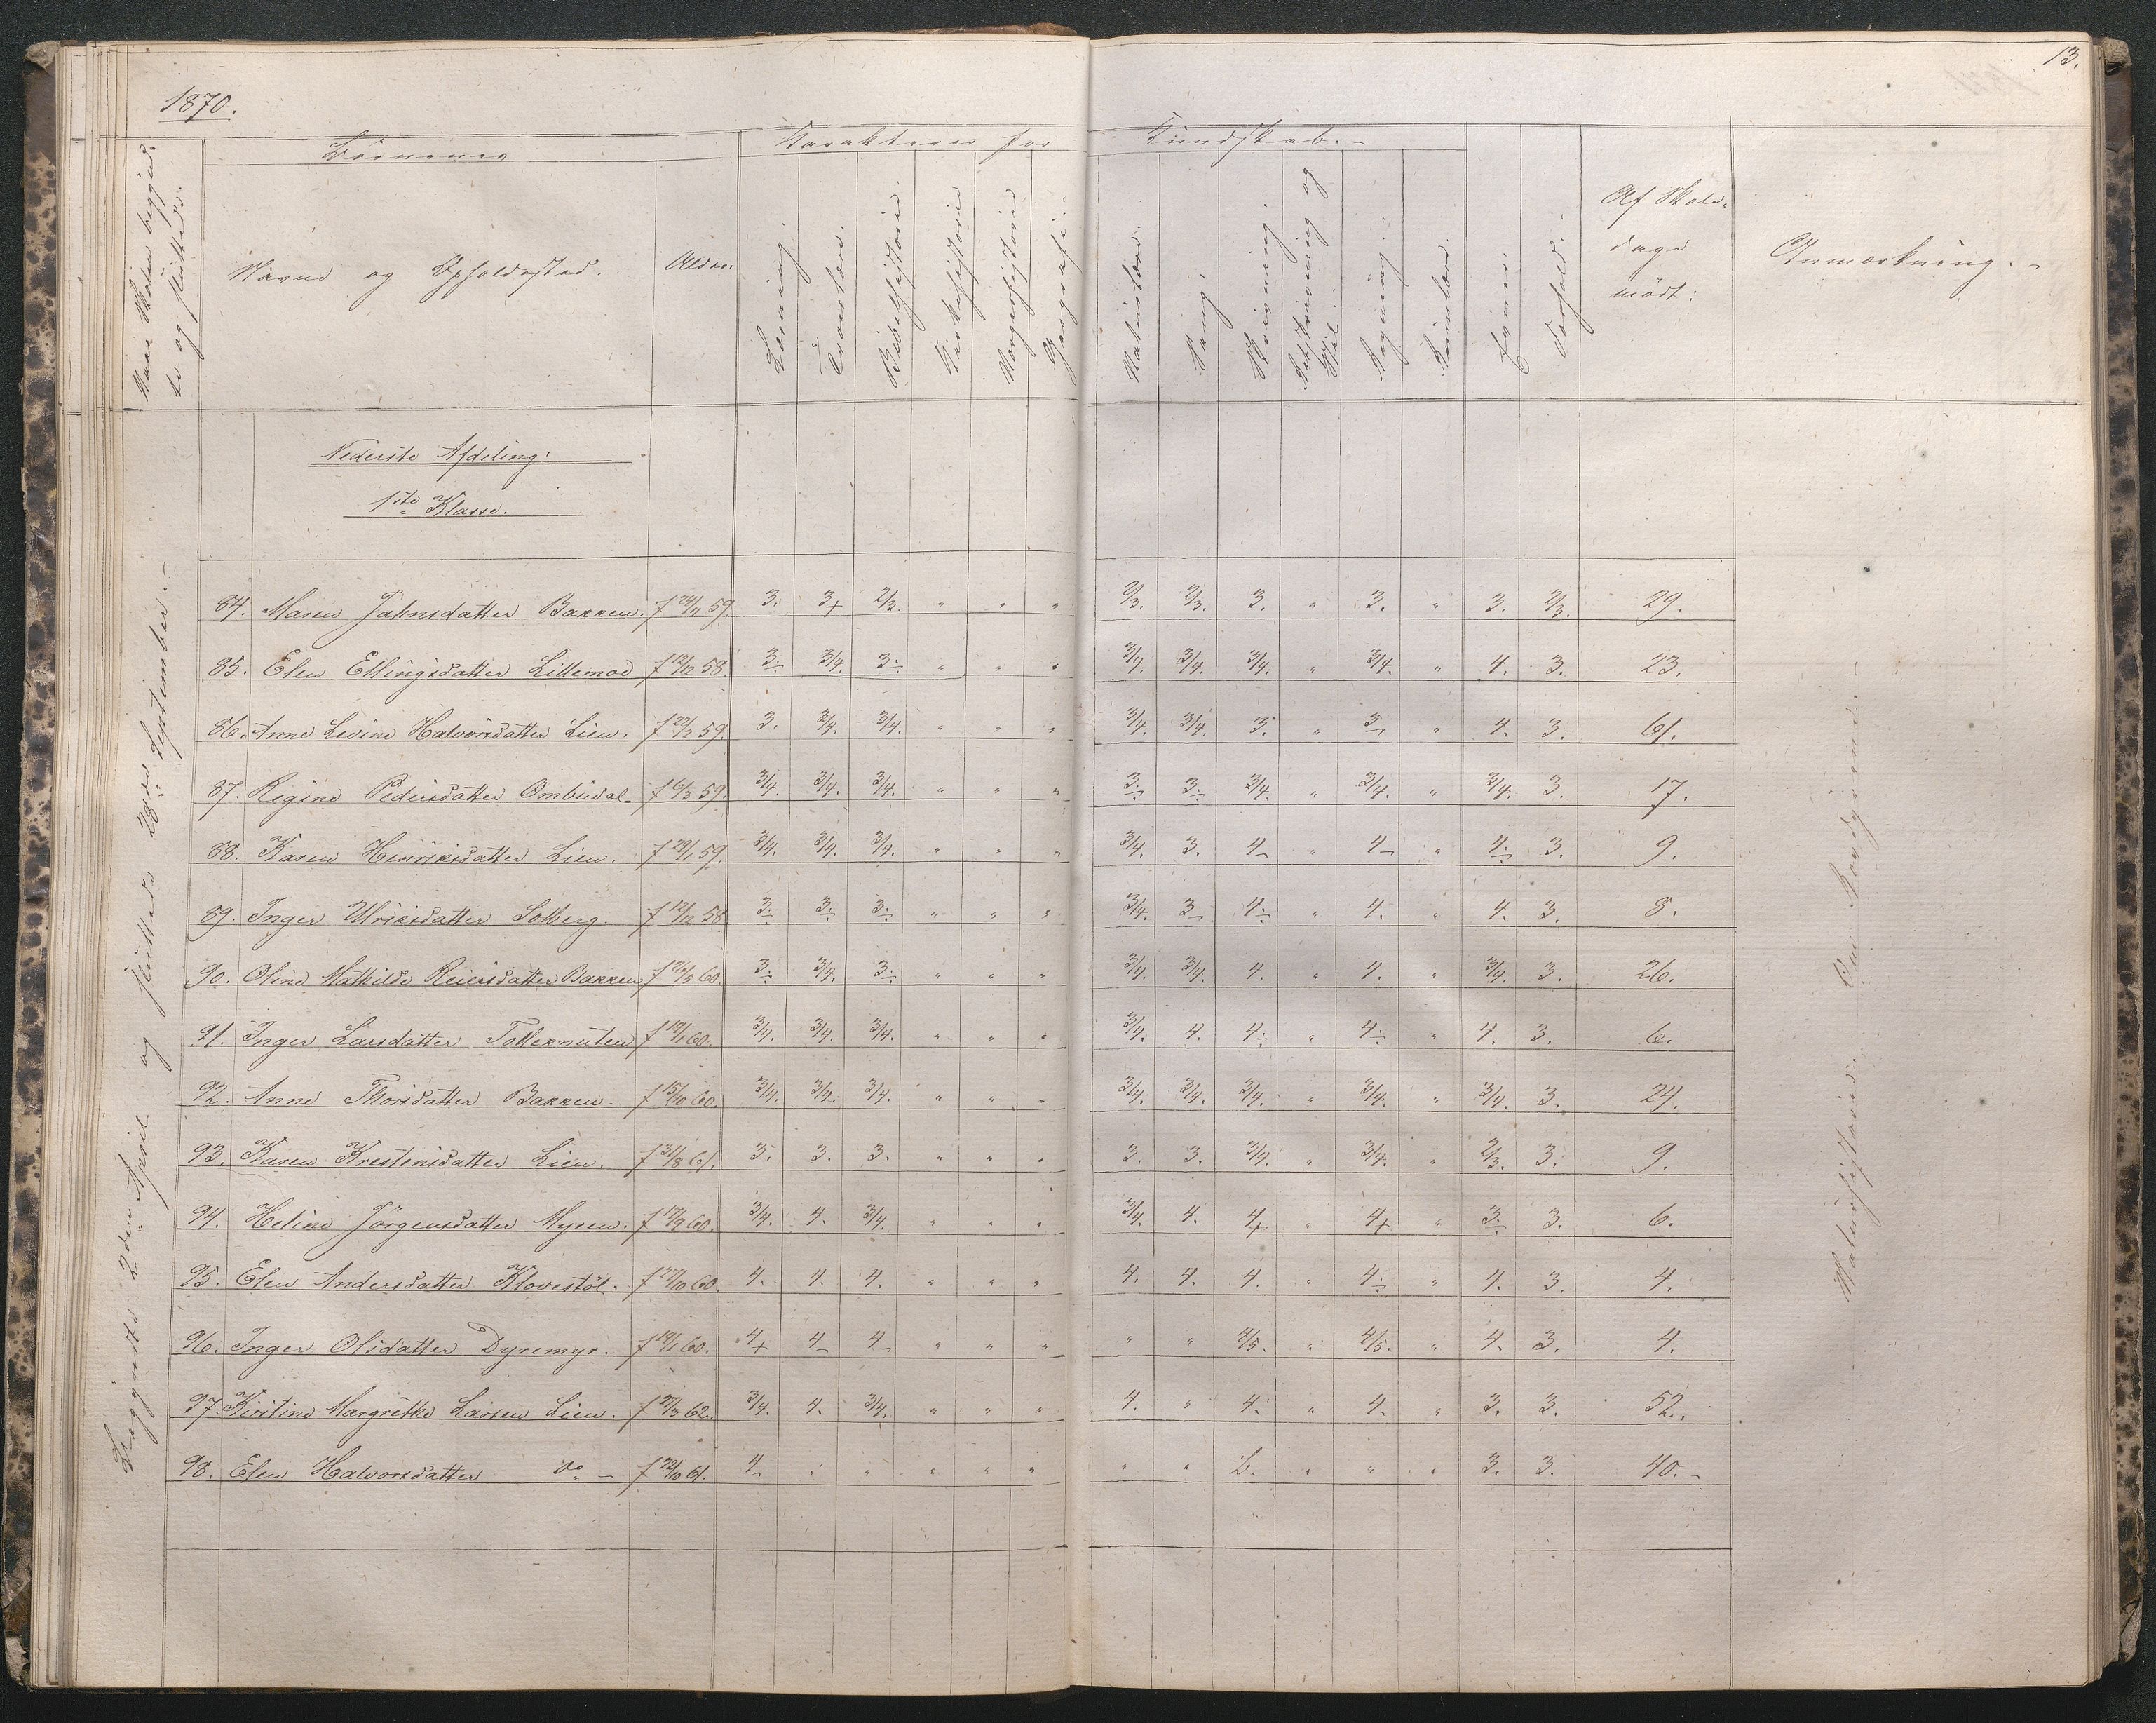 1870.
13.
Naar Skolen begynd-
te og sluttede.
Børnenes
Karakterer for
Kundskab.
Navne og Opholdssted.
Alder.
Læsning.
Troeslære.
Bibelhistorie.
Kirkehistorie
Norgeshistorie
Geografi.
Naturlære.
Sang.
Skrivning.
Retskrivning og
Stil.
Regning.
Formlære.
Evner.
Forhold.
Af Skole-
dage
mødt:
Anmærkning.
Nederste Afdeling.
1ste Klasse.
Begyndte 2den April og sluttede 28de September.
84. Maren Jahnsdatter Bakken. f 24/11 59. 3. 3+ 2/3. " " " 2/3. 2/3. 3. " 3. " 3. 2/3. 29.
85. Elen Ellingsdatter Lillemod f 12/12 58. 3÷ 3/4. 3÷ " " " 3/4. 3/4. 3/4. " 3/4. " 4. 3. 23.
86. Anne Levine Halvorsdatter Lien. f 22/12 59. 3. 3/4. 3/4. " " " 3/4. 3/4. 3. " 3 " 4. 3. 61.
87. Regine Pedersdatter Ombudal f 6/3 59. 3/4. 3/4. 3/4. " " " 3÷ 3÷ 3/4. " 3/4. " 3/4. 3. 17.
88. Karen Henriksdatter Lien. f 29/1 59. 3/4. 3/4. 3/4. " " " 3/4. 3. 4 " 4 " 4÷ 3. 9.
89. Inger Ulriksdatter Solberg. f 12/12 58 3÷ 3÷ 3÷ " " " 3/4. 3 4÷ " 4. " 4. 3. 8.
90. Oline Mathilde Reiersdatter Bakken f 26/5 60. 3÷ 3/4. 3÷ " " " 3/4. 3/4. 4. " 4. " 3/4. 3. 26.
91. Inger Larsdatter Tolleknuten f 19/1 60. 3/4. 3/4. 3/4. " " " 3/4. 4. 4÷ " 4÷ " 4. 3. 6.
92. Anne Thorsdatter Bakken. f 15/10 60. 3/4. 3/4. 3/4. " " " 3/4. 3/4. 3/4. " 3/4. " 3/4. 3. 24.
93. Karen Krestensdatter Lien. f 31/8 61. 3. 3. 3. " " " 3. 3. 3/4. " 3/4. " 2/3. 3. 9.
94. Heline Jörgensdatter Myren. f 17/9 60. 3/4. 4. 3/4. " " " 3/4. 4. 4+ " 4+ " 3÷ 3. 6.
95. Elen Andersdatter Klovestöl. f 27/10 60. 4. 4. 4. " " " 4. 4. 4. " 4÷ " 4. 3. 4.
96. Inger Olsdatter Dyremyr. f 19/1 60. 4+ 4 4 " " " " " 4/5. " 4/5. " 4. 3. 4.
97. Kirstine Margrethe Larsen Lien. f 27/3 62. 3/4. 4. 3/4. " " " 4. " 4. " 4. " 3. 3. 52.
98. Elen Halvorsdatter do f 22/10 61. 4 " " " " " " " B. " " " 3. 3. 40.